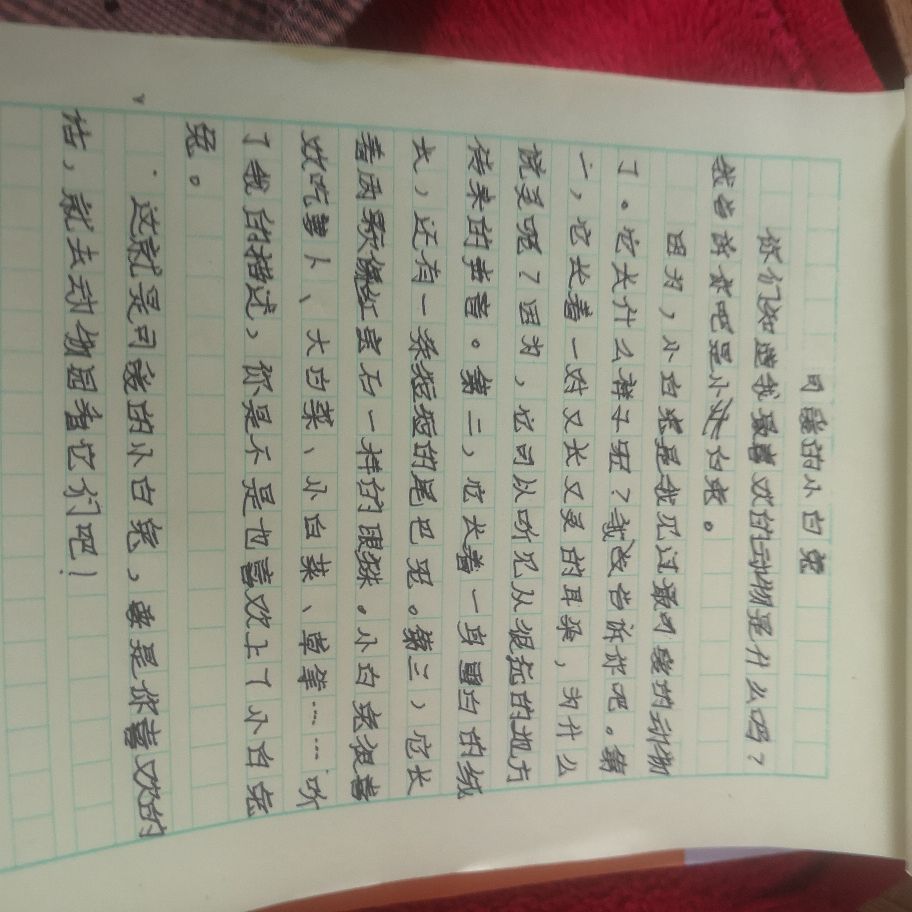 可爱的小白兔
你们知道我最喜欢的动物是什么吗?
我告诉你吧是小白兔。
因为,小白兔是我见过最可爱的动物
了。它长什么样子呢?我告诉你吧。第
一,它长着一对又长又灵的耳朵,为什么
说灵呢?因为,它可以听见从很远的地方
传来的声音。第二,它长着一身雪白的绒
长,还有一条短短的尾巴呢。第三,它长
着两颗像红宝石一样的眼珠。小白兔很喜
欢吃萝卜、大白菜、小白菜、草等……听
了我的描述,你是不是也喜欢上了小白兔
兔。
这就是可爱的小白兔,要是你喜欢的
话,就去动物园看它们吧!